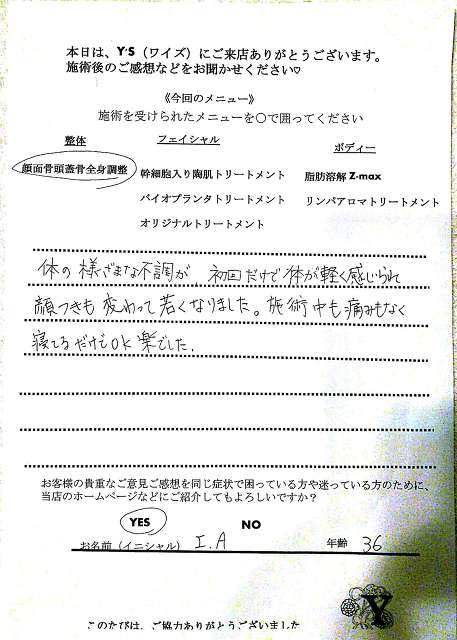 本日は、Y'S（ワイズ）にご来店ありがとうございます。
施術後のご感想などをお聞かせください♡
《今回のメニュー》
施術を受けられたメニューを〇で囲ってください
整体 フェイシャル ボディー
顔面骨頭蓋骨全身調整 幹細胞入り陶肌トリートメント 脂肪溶解 Z-max
バイオプランタトリートメント リンパアロマトリートメント
オリジナルトリートメント
体の様ざまな不調が、初回だけで体が軽く感じられ
顔つきも変わって若くなりました。施術中も痛みもなく
寝てるだけでOK楽でした.
お客様の貴重なご意見ご感想を同じ症状で困っている方や迷っている方のために、
当店のホームページなどにご紹介してもよろしいですか？
YES NO
お名前（イニシャル） I.A 年齢 36
Y
このたびは、ご協力ありがとうございました